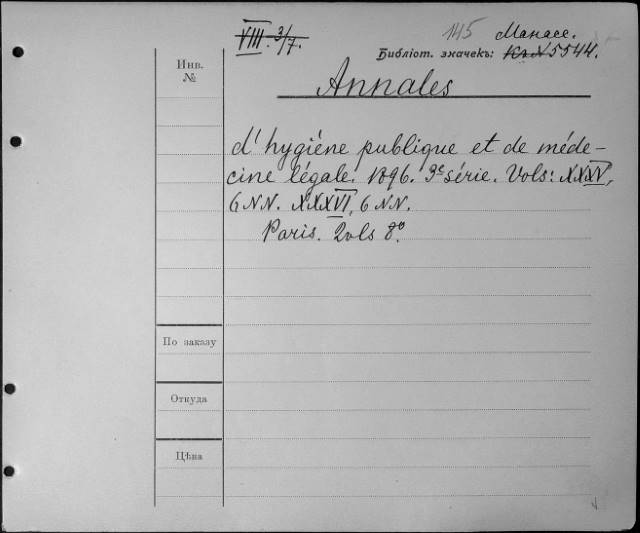 VIII. 3/7. 145 Манасс.
Инв. №
Библіот. значекъ: 5544.
Annales
d'hygiéne publique et de méde-
cine légale. 1896. 3e série. Vols: XXXV,
6 NN. XXXVI, 6 NN.
Paris. 2 vols 8º.
По заказу
Откуда
Цѣна